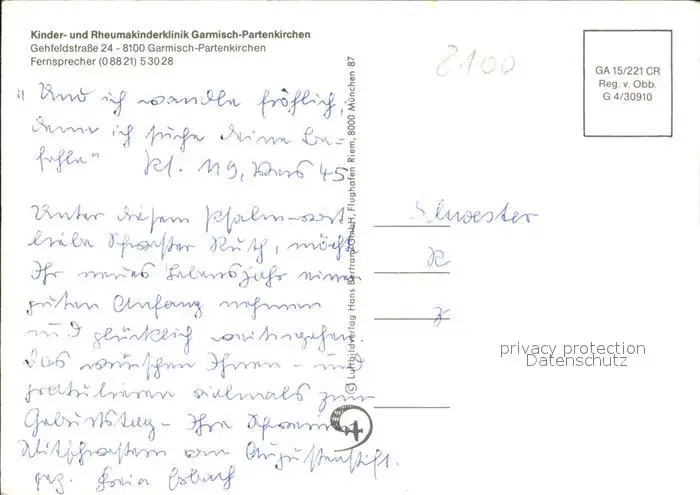 Kinder- und Rheumakinderklinik Garmisch-Partenkirchen
Gehfeldstraße 24 - 8100 Garmisch-Partenkirchen
Fernsprecher (0 88 21) 5 30 28
2100
GA 15/221 CR
Reg. v. Obb.
G 4/30910
"Und ich wandle fröhlich,
denn ich suche deine Be=
fehle" Ps. 119, Vers 45
Unter diesem Psalm-wort
liebe Schwester Ruth, möchte
Ihr neues Lebensjahr einen
guten Anfang nehmen
und glücklich weitergehen.
Das wünschen Ihnen - und
gratulieren vielmals zum
Geburtstag - Ihre
Mitschwestern vom Augustenstift.
gez.
© Luftbildverlag Hans Bertram GmbH, Flughafen Riem, 8000 München 87
Schwester
R
privacy protection
Datenschutz